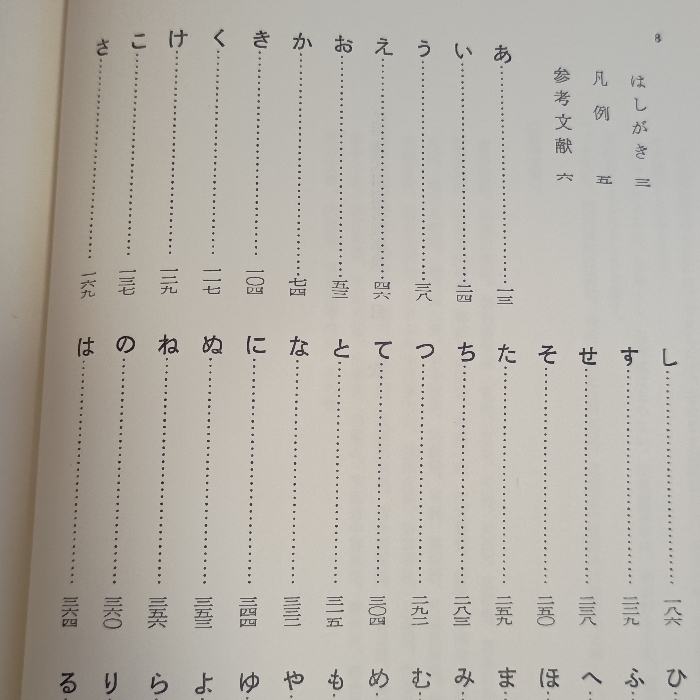 8
はしがき 三
凡例 五
参考文献 六
あ……一三
い……二四
う……三八
え……四六
お……五三
か……七四
き……一〇四
く……一一七
け……一二九
こ……一三七
さ……一六九
し……一八六
す……二二九
せ……二三八
そ……二五〇
た……二五九
ち……二八三
つ……二九二
て……三〇四
と……三一五
な……三三二
に……三四四
ぬ……三五三
ね……三五六
の……三六〇
は……三六四
ひ
ふ
へ
ほ
ま
み
む
め
も
や
ゆ
よ
ら
り
る